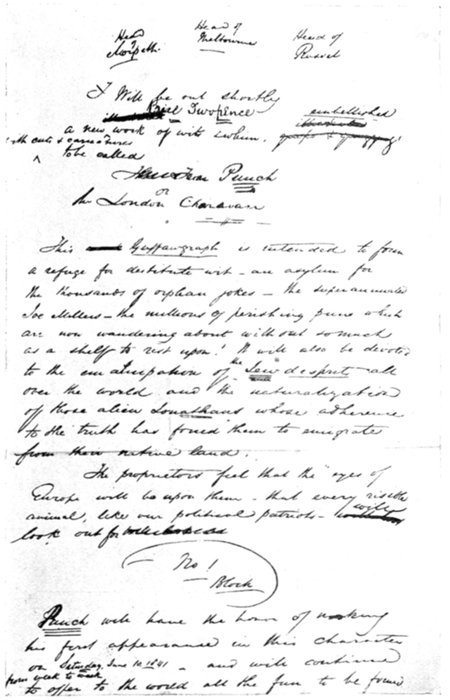 Head Morpeth Head of Melbourne Head of Russel
Will be out shortly
Price Twopence embellished
a new work of wit & whim,
with cuts & caricatures
to be called
Punch
or
The London Charavari
This Guffawgraph is intended to form
a refuge for destitute wit – an asylum for
the thousands of orphan jokes – the superannuated
Joe Millers – the millions of perishing puns which
are now wandering about without so much
as a shelf to rest upon! It will also be devoted
to the emancipation of the Jew d'esprits all
over the world and the naturalization
of those alien Jonathans whose adherence
to the truth has forced them to emigrate
from their native land.
The proprietors feel that the "eyes of
Europe will be upon them – that every risible
animal, like our political patriots – will
look out for
No 1
Block
Punch will have the honor of making
his first appearance in this character
on Saturday, June 10th 41 – and will continue
from week to week
to offer to the world all the fun to be found